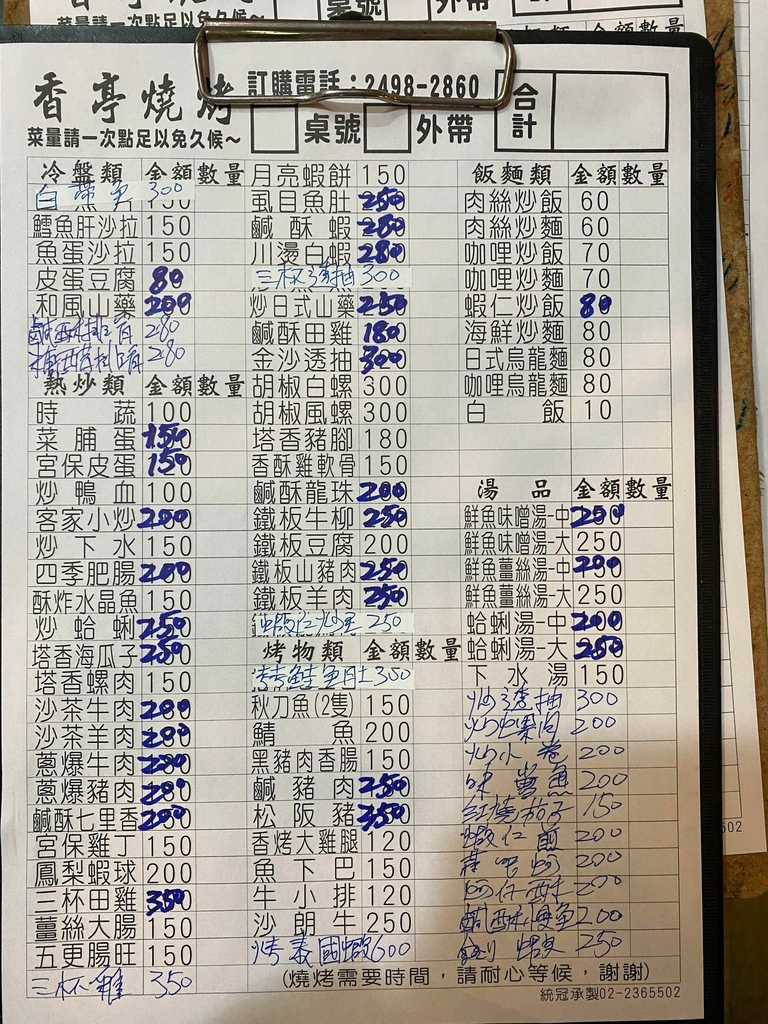 訂購電話：2498-2860
香亭燒烤
菜量請一次點足以免久候～
桌號
外帶
合計
冷盤類 金額 數量
白帶魚 300
鱈魚肝沙拉 150
魚蛋沙拉 150
皮蛋豆腐 80
和風山藥 200
鹹酥排骨 280
280
熱炒類 金額 數量
時蔬 100
菜脯蛋 150
宮保皮蛋 150
炒鴨血 100
客家小炒 200
炒下水 150
四季肥腸 200
酥炸水晶魚 150
炒蛤蜊 250
塔香海瓜子 250
塔香螺肉 150
沙茶牛肉 200
沙茶羊肉 200
蔥爆牛肉 200
蔥爆豬肉 200
鹹酥七里香 200
宮保雞丁 150
鳳梨蝦球 200
三杯田雞 350
薑絲大腸 150
五更腸旺 150
三杯雞 350
月亮蝦餅 150
虱目魚肚 250
鹹酥蝦 280
川燙白蝦 280
三杯透抽 300
炒日式山藥 250
鹹酥田雞 180
金沙透抽 300
胡椒白螺 300
胡椒風螺 300
塔香豬腳 180
香酥雞軟骨 150
鹹酥龍珠 200
鐵板牛柳 250
鐵板豆腐 200
鐵板山豬肉 250
鐵板羊肉 250
蝦仁炒蛋 250
烤物類 金額 數量
烤鮭魚肚 350
秋刀魚(2隻) 150
鯖魚 200
黑豬肉香腸 150
鹹豬肉 250
松阪豬 350
香烤大雞腿 120
魚下巴 150
牛小排 120
沙朗牛 250
烤泰國蝦 600
飯麵類 金額 數量
肉絲炒飯 60
肉絲炒麵 60
咖哩炒飯 70
咖哩炒麵 70
蝦仁炒飯 80
海鮮炒麵 80
日式烏龍麵 80
咖哩烏龍麵 80
白飯 10
湯品 金額 數量
鮮魚味噌湯-中 200
鮮魚味噌湯-大 250
鮮魚薑絲湯-中
鮮魚薑絲湯-大 250
蛤蜊湯-中 200
蛤蜊湯-大 250
下水湯 150
炒透抽 300
炒螺肉 200
炒小卷 200
200
紅燒茄子 150
蝦仁煎 200
200
蚵仔酥 200
鹹酥鰻魚 200
蝦 250
(燒烤需要時間，請耐心等候，謝謝)
統冠承製02-2365502